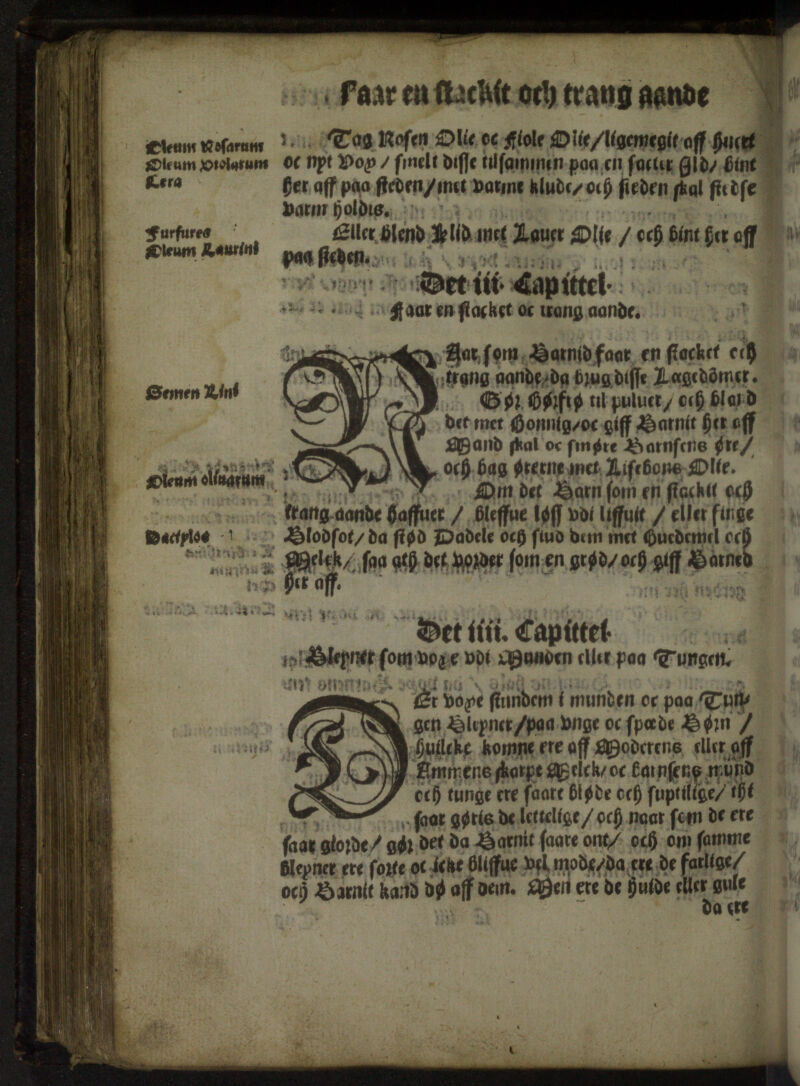 Faar en stackit och trang aande
Oleum Rosarum
Oleum Violarum
Cera
Tag Rosen Olie oc Fiole Olie/ligemegit aff huert
oc nyt Vox / smelt disse tilsammen paa en sacte Ild/ bint
her aff paa sieden/met varme klude/och sieden skal stedse
varm holdis.
Furfures
Oleum Laurini
Eller blend Klid met Lauer Olie / och bint her aff
paa sieden.
Det iii. Capittel.
Faar en stacket oc trang aande.
Semen Lini
Har som Barnid faar en stacket och
trang aande/da brug disse Lægedomer.
Gør Hørfrø til puluer/ och bland
det met Honnig/oc giff Barnit her aff
Mand skal oc smøre Barnsens øre/
Oleum olivarum
och bag ørerne met Lissebons Olie.
Om det Barn som en stackit och
trang aande haffuer / bleffue løss vdi liffuit / eller finge
Dactylos
Blodsot/ da stød Dadele och siud dem met Huedemel och
Melck/ saa ath det vorder som en grød/och giff Barned
her aff.
Det iiii. Capittel.
Blegner som voxe vdi Munden eller paa Tungen.
Er voxe stundem i munden oc paa Tun-
gen Blegner/paa vnge oc spæde Børn /
huilcke komme ere aff Moderens eller aff
Ammens skarpe Melck/oc Barnsens mund
och tunge ere saare bløde och suptilige/ thi
saar gøris de lettelige/och naar som de ere
saar giorde/ gør det da Barnit saare ont/ och om samme
Blegner ere sorte oc icke bliffue vel mode/da ere de farlige/
och Barnit kand dø aff dem. Men ere de huide eller gule
da ere